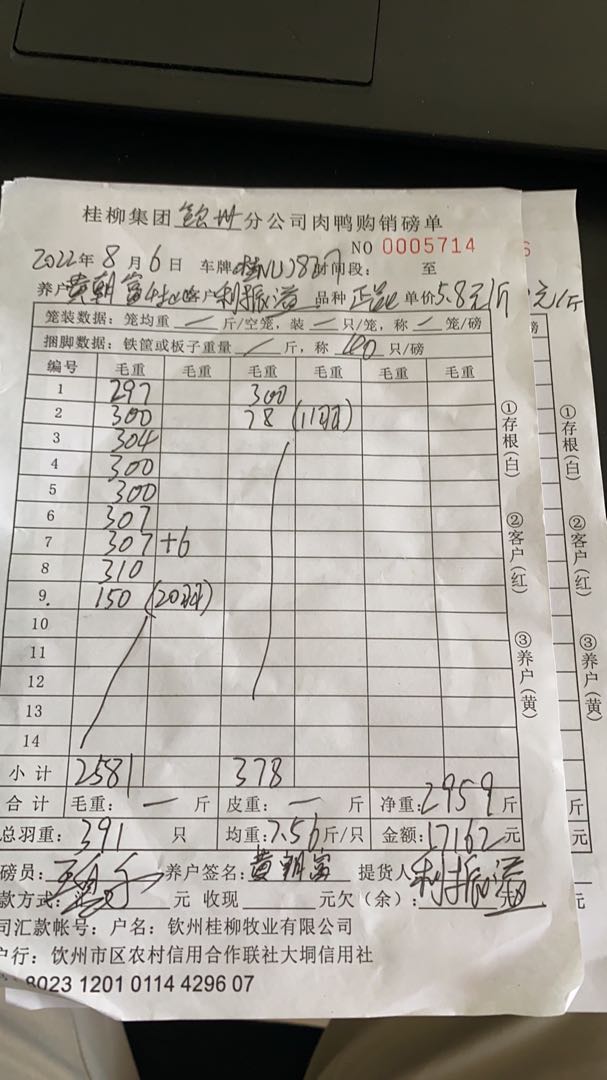 桂柳集团 钦州 分公司肉鸭购销磅单
NO 0005714
2022年 8 月 6 日 车牌 时间段： 至
养户 黄朝富 客户 利振溢 品种 单价 5.8元/斤
笼装数据：笼均重 一 斤/空笼，装 一 只/笼，称 一 笼/磅
捆脚数据：铁筐或板子重量 一 斤，称 40 只/磅
编号 毛重 毛重 毛重 毛重 毛重 毛重
1 297 300
2 300 78 (11羽)
3 304
4 300
5 300
6 307
7 307+6
8 310
9. 150 (20羽)
10
11
12
13
14
小计 2581 378
合计 毛重： 一 斤 皮重： 一 斤 净重： 2959 斤
总羽重： 391 只 均重： 7.56 斤/只 金额： 17162 元
磅员： 养户签名： 黄朝富 提货人 利振溢
款方式： 元 收现 元欠（余）：
司汇款帐号：户名：钦州桂柳牧业有限公司
户行：饮州市区农村信用合作联社大垌信用社
8023 1201 0114 4296 07
①存根(白)
②客户(红)
③养户(黄)
6
元/斤
磅
①存根(白)
②客户(红)
③养户(黄)
斤
元
元